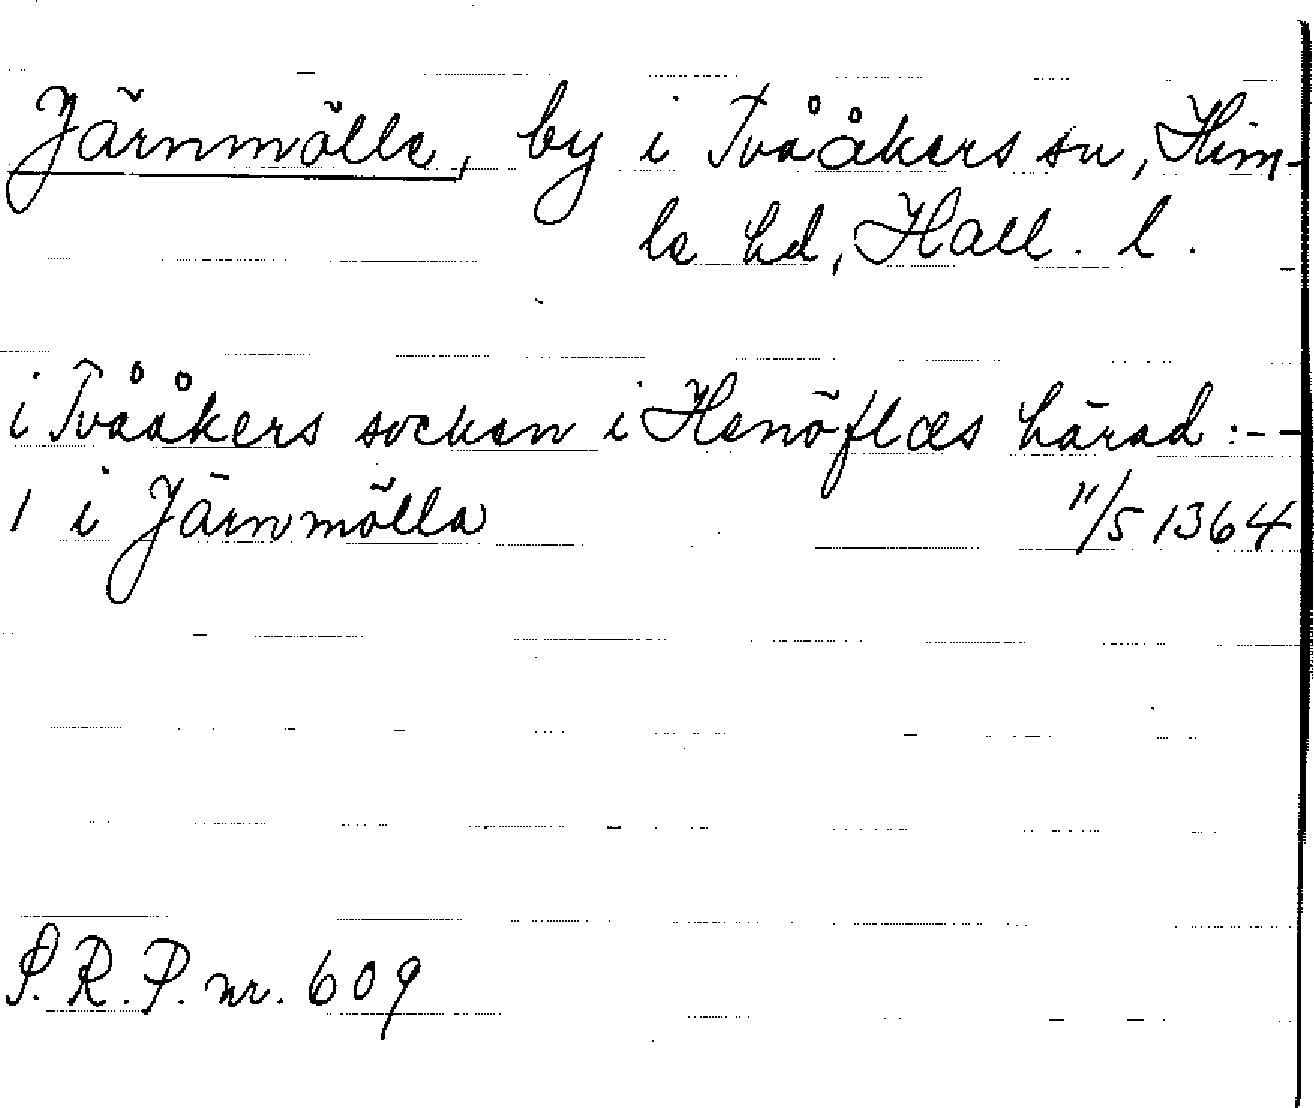 Järnmölle, by i Tvååkers sn, Him-
le hd, Hall. l.
i Tvååkers socken i Henöflæs härad :--
1 i Järnmölla 11/5 1364
S.R.P. nr. 609